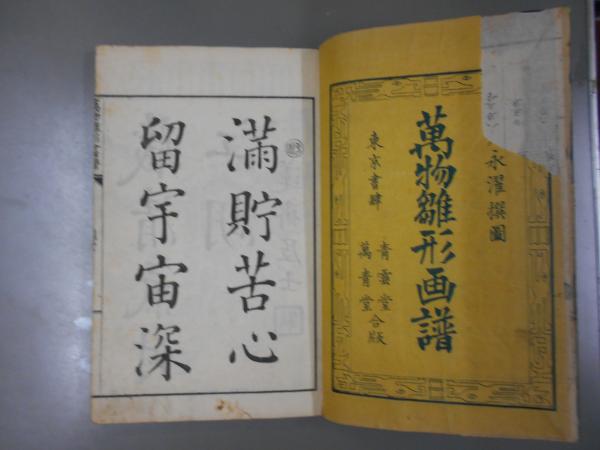 永濯撰圖
萬物雛形画譜
東京書肆
青雲堂
萬青堂
合版
滿貯苦心
留宇宙深